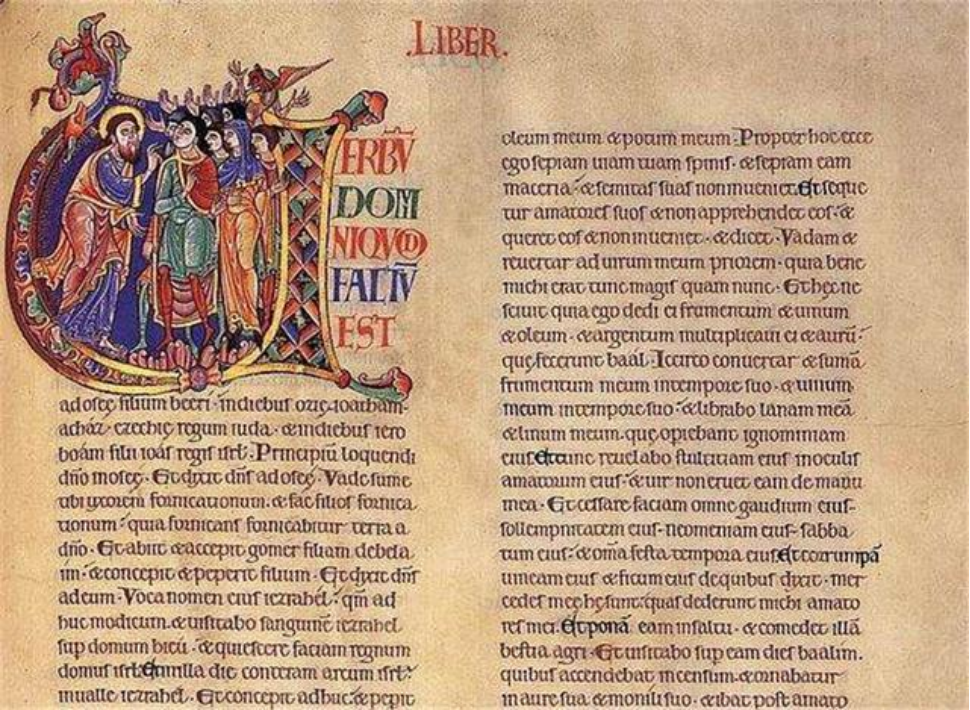 .LIBER.
ERBV̄
DOM̄I
NI QVOD
FACTV̄
EST
ad oseę filium beeri · in diebus ozię · ioatham ·
achaz · ezechię regum iuda · & in diebus iero
boam filii ioas regis isrl̄ · Principiū loquendi
dn̄o in oseę · Et dixit dn̄s ad oseę · Vade sume
tibi uxorem fornicationum · & fac filios fornica
tionum · quia fornicans fornicabitur terra a
dn̄o · Et abiit & accepit gomer filiam debela
im · & concepit & peperit filium · Et dixit dn̄s
ad eum · Voca nomen eius iezrahel · qm̄ ad
huc modicum · & uisitabo sanguinē iezrahel
sup domum hieu · & quiescere faciam regnum
domus isrl̄ · Et in illa die conteram arcum isrl̄
in ualle iezrahel · Et concepit adhuc · & pepit
oleum meum & potum meum · Propter hoc ecce
ego sepiam uiam tuam spinis · & sepiam eam
maceria · & semitas suas non inueniet · Et seque
tur amatores suos & non apprehendet eos · &
queret eos & non inueniet · & dicet · Vadam &
reuertar ad uirum meum priorem · quia bene
michi erat tunc magis quam nunc · Et hęc ne
sciuit quia ego dedi ei frumentum & uinum
& oleum · & argentum multiplicaui ei & aurū ·
quę fecerunt baal · Iccirco conuertar & sumā
frumentum meum in tempore suo · & uinum
meum in tempore suo · & librabo lanam meā
& linum meum · quę opiebant ignominiam
eius · Et tunc reuelabo stulticiam eius in oculis
amatorum eius · & uir non eruet eam de manu
mea · Et cessare faciam omne gaudium eius ·
sollempnitatem eius · neomeniam eius · sabba
tum eius · & om̄ia festa tempora eius · Et corrumpā
uineam eius & ficum eius de quibus dixit · mer
cedes meę hę sunt · quas dederunt michi amato
res mei · Et ponā eam in saltu · & comedet illā
bestia agri · Et uisitabo sup eam dies baalim ·
quibus accendebat incensum · & ornabatur
in aure sua & monili suo · & ibat post amato